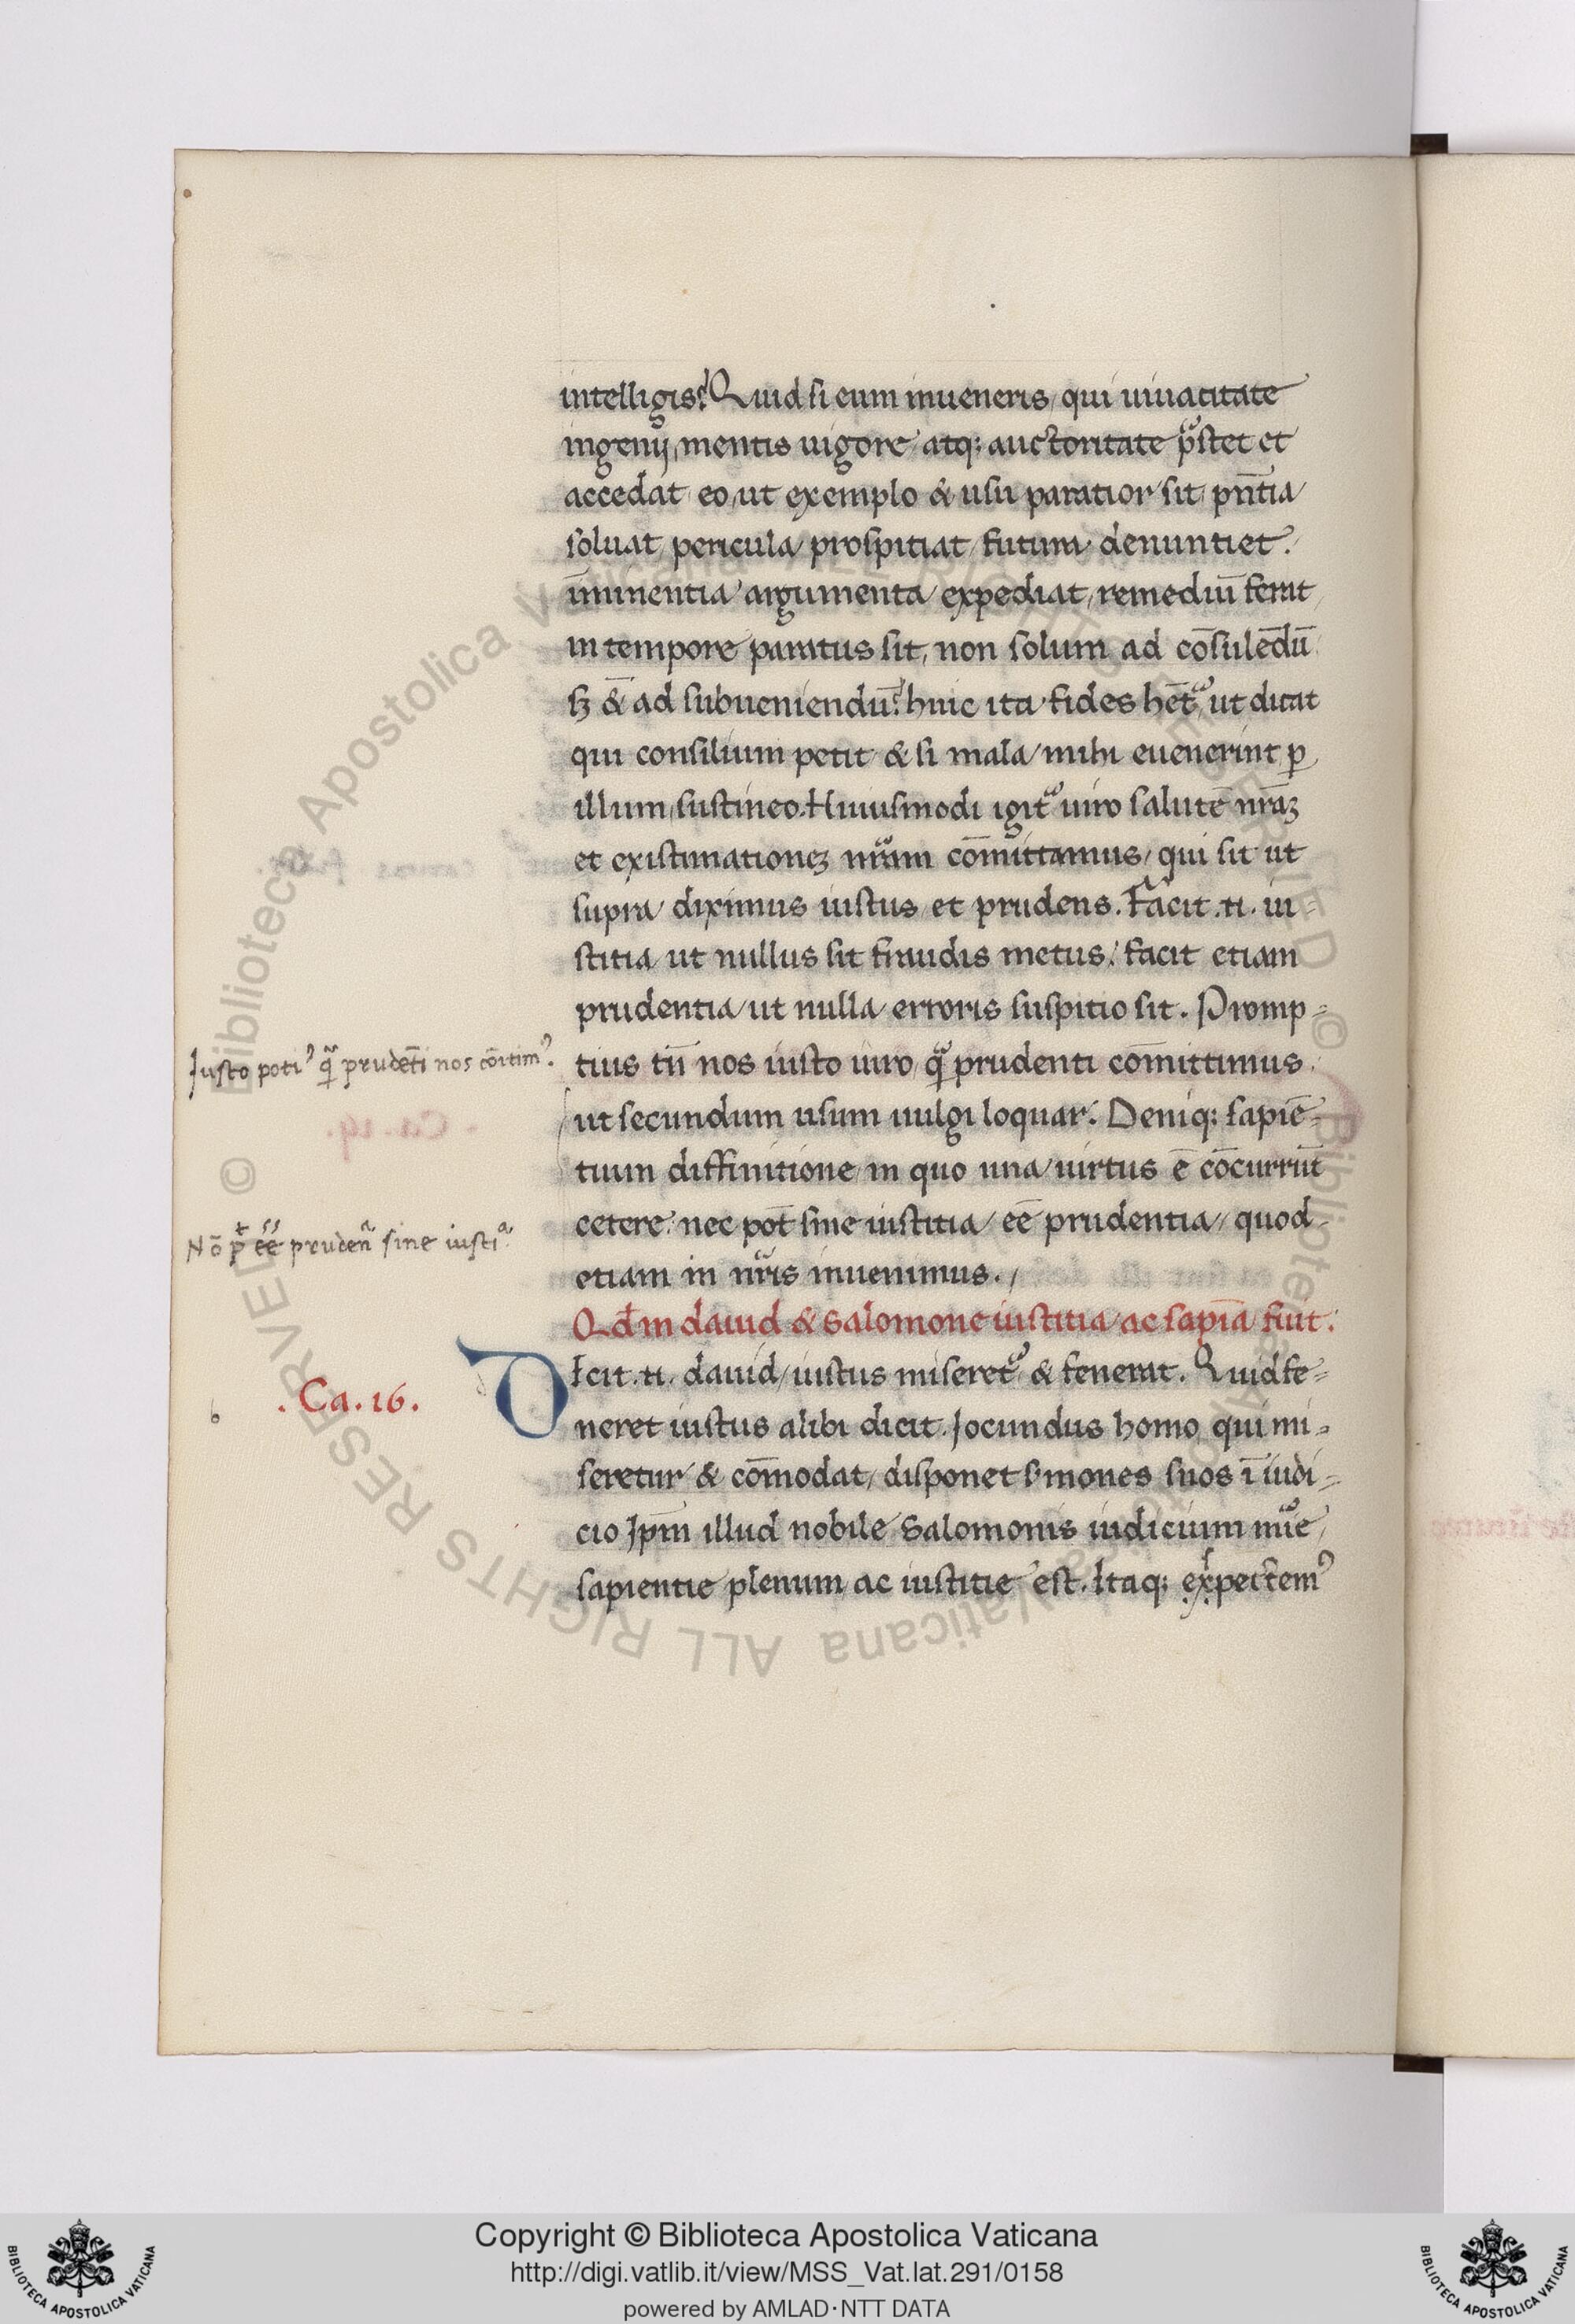 intelligis? Quid si eum inueneris, qui uiuacitate
ingenij, mentis uigore atq; auctoritate p̃stet et
accedat eo, ut exemplo & usu paratior sit, pñtia
soluat, pericula prospitiat, futura denuntiet.
im̅inentia argumenta expediat, remediu̅ ferat
in tempore paratus sit, non solum ad co̅sule̅du̅
sꝫ &̅ ad subueniendu̅? huic ita fides he̅t᷑ ut dicat
qui consilium petit & si mala mihi euenerint ꝑ
illum, sustineo. Huiusmodi igit᷑ uiro salute̅ nr̅aꝫ
et existimationeꝫ nr̅am co̅mittamus, qui sit ut
supra diximus iustus et prudens. Facit .n. iu-
stitia ut nullus sit fraudis metus: facit etiam
prudentia ut nulla erroris suspitio sit. Promp-
Iusto potiꝰ q̃ prude̅ti nos co̅itimꝰ.
tius tn̅ nos iusto uiro q̃ prudenti co̅mittimus.
ut secundum usum uulgi loquar. Deniq; sapie̅-
tium diffinitione in quo una uirtus e̅ co̅curru̅t
No̅ p̅t ee̅ pruden̅a sine iustia.
cetere: nec pot̅ sine iustitia ee̅ prudentia, quod
etiam in nr̅is inuenimus.
Qd̅ in dauid & Salomone iustitia ac sapi̅a fuit.
. Ca. 16.
b
DIcit .n. dauid, iustus miseret᷑ & fenerat. Quid fe-
neret iustus alibi dicit. Iocundus homo qui mi-
seretur & co̅modat, disponet s̓mones suos i̅ iudi-
cio Ip̅m illud nobile Salomonis iudicium nu̅e
sapientie plenum ac iustitie est. Itaq; expectemꝰ
Copyright © Biblioteca Apostolica Vaticana
http://digi.vatlib.it/view/MSS_Vat.lat.291/0158
powered by AMLAD·NTT DATA
BIBLIOTECA APOSTOLICA VATICANA
BIBLIOTECA APOSTOLICA VATICANA